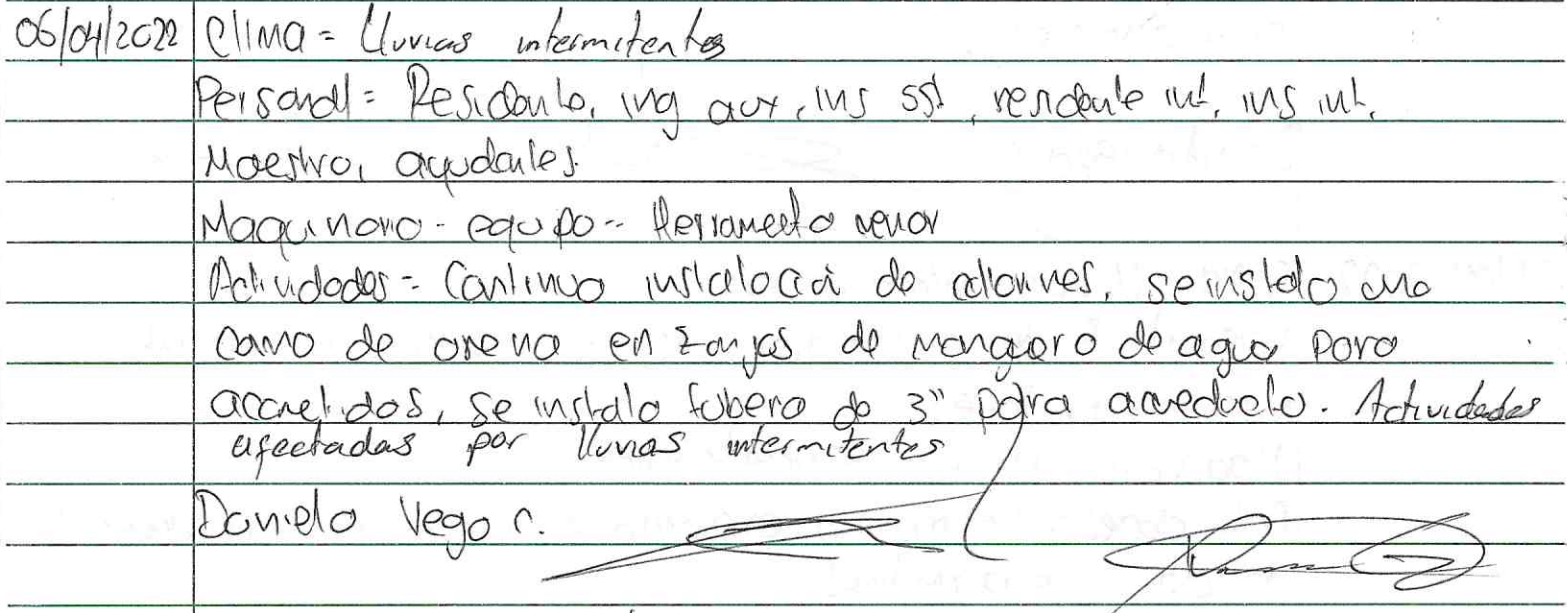 06/04/2022 Clima = Lluvias intermitentes
Personal = Residente, ing aux, ins sst, residente int, ins int.
Maestro, ayudantes.
Maquinaria - equipo -- Herramienta menor
Actividades = Continuo instalación de , se instalo una
cama de arena en zanjas de manguera de agua para
acometidas, se instalo tubera de 3" para acueducto. Actividades
afectadas por lluvias intermitentes
Daniela Vega C.